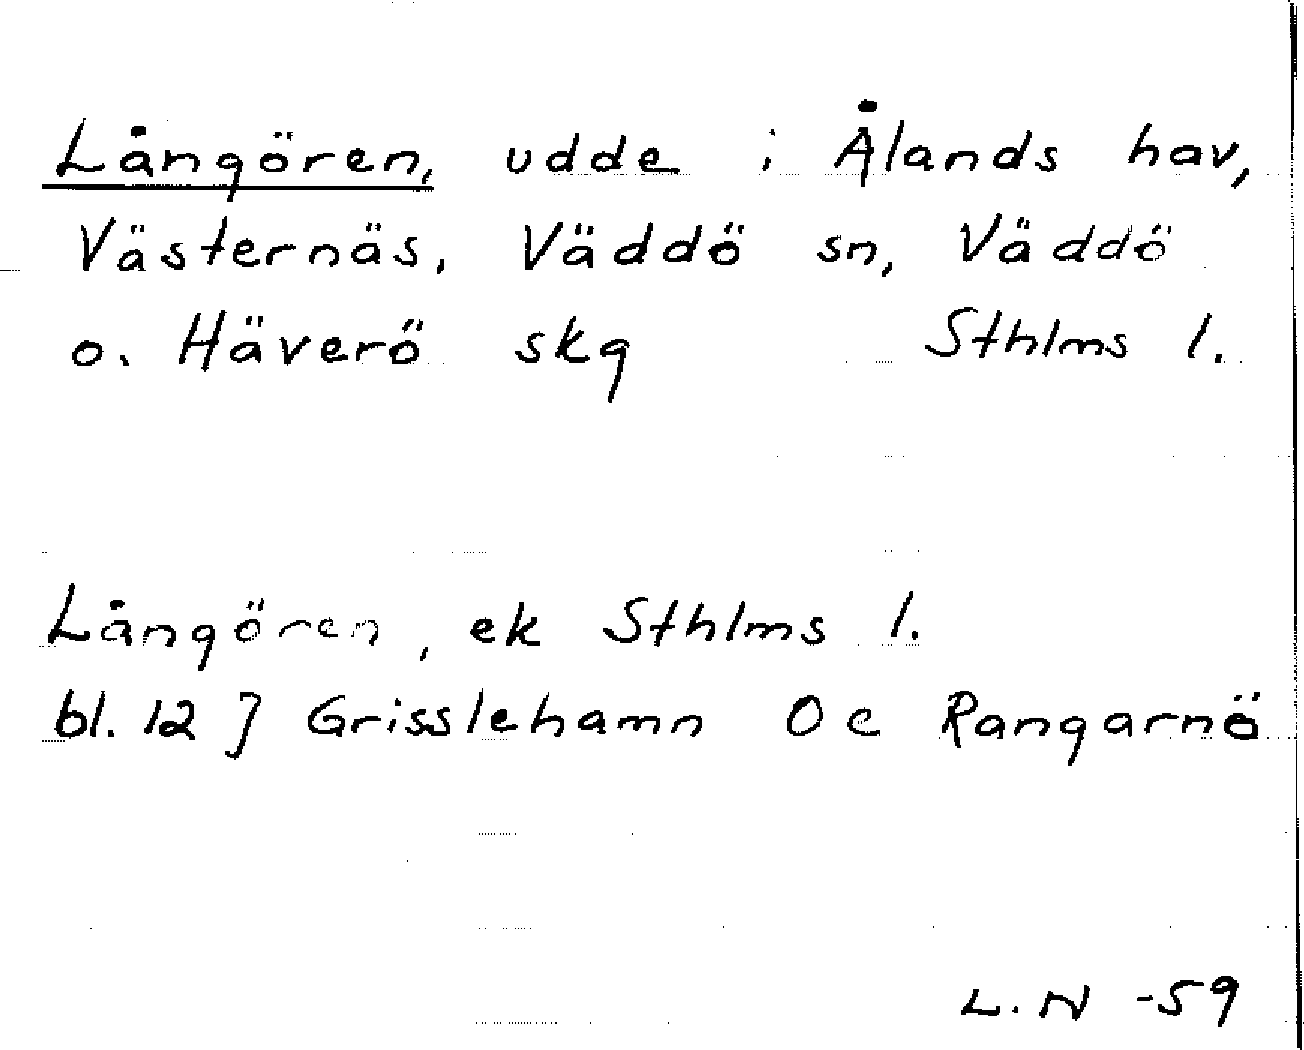 Långören, udde i Ålands hav,
Västernäs, Väddö sn, Väddö
o. Häverö skg Sthlms l.
Långören, ek Sthlms l.
bl. 12 J Grisslehamn Oc Rangarnö
L. N -59